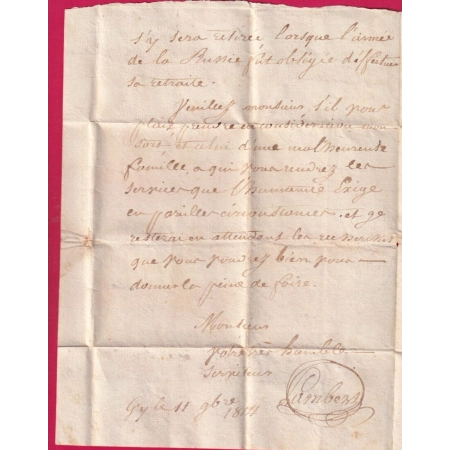 s'y sera retirée lorsque l'armée
de la Russie fut obligée d'effectuer
sa retraite.
Veuillez monsieur s'il vous
plait prendre en considération mon
sort et celui d'une malheureuse
famille, a qui vous rendrez les
services que l'humanité Exige
en pareilles circonstances. et je
resterai en attendant les recherches
que vous voudrez bien vous
donner la peine de faire.
Monsieur
votre très humble
serviteur
Lambert
Gy le 11 9bre 1814